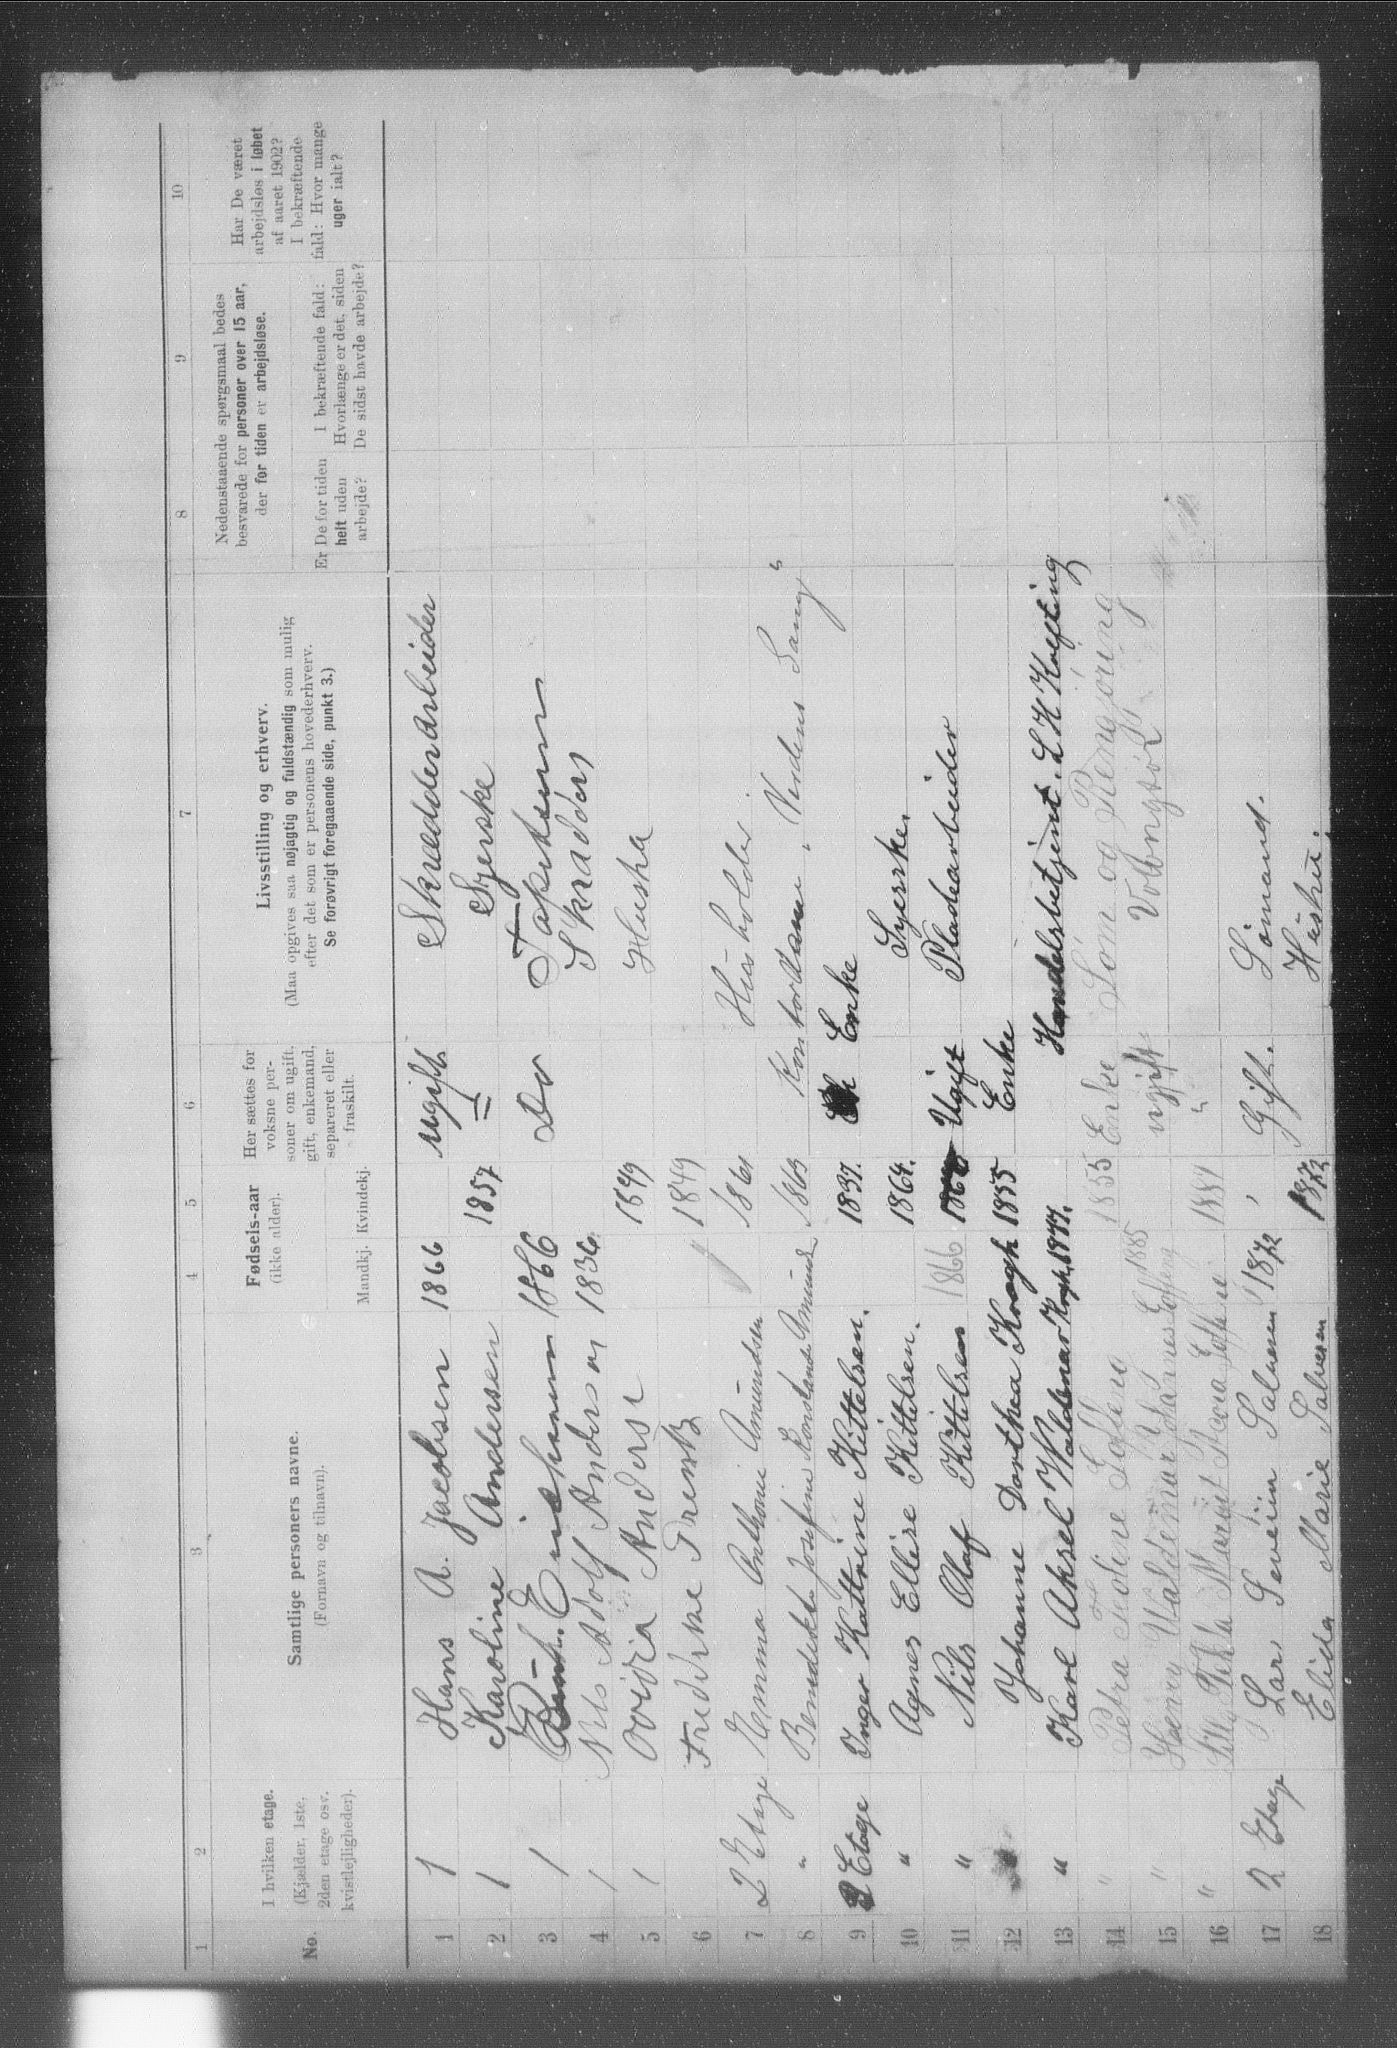 1 2 3 4 5 6 7 8 9 10
No.
I hvilken etage.
(Kjælder, 1ste,
2den etage osv.
kvistlejligheder).
Samtlige personers navne.
(Fornavn og tilnavn).
Fødsels-aar
(ikke alder).
Mandkj. Kvindekj.
Her sættes for
voksne per-
soner om ugift,
gift, enkemand,
separeret eller
fraskilt.
Livsstilling og erhverv.
(Maa opgives saa nøjagtig og fuldstændig som mulig
efter det som er personens hovederhverv.
Se forøvrigt foregaaende side, punkt 3.)
Nedenstaaende spørgsmaal bedes
besvarede for personer over 15 aar,
der for tiden er arbejdsløse.
Er De for tiden
helt uden
arbejde?
I bekræftende fald:
Hvorlænge er det, siden
De sidst havde arbejde?
Har De været
arbejdsløs i løbet
af aaret 1902?
I bekræftende
fald: Hvor mange
uger ialt?
1 1 Hans A. Jacobsen 1866 ugift Skrædderarbeider
2 1 Karoline Andersen 1857 " Syerske
3 1 1866 Do
4 1 Nils Adolf Andersen 1836 Skradder
5 1 Andersen 1849
6 Fredrikke 1849
7 2 Etage Emma Anthoni Amundsen 1861 Husholder
8 " Benedikte Josefine Amunds 1863 Kontordame "Verdens Gang"
9 2 Etage Inger Kattrine Kittelsen. 1837. Enke
10 " Agnes Ellise Kittelsen. 1864. Syerske.
11 " Nils Olaf Kittelsen 1866 Ugift Pladearbeider
12 Johanne Dorthea Krogh 1855 Enke
13 " Karl Aksel Waldemar Krogh, 1877. Handelsbetjent. L H Kolfting
14 " Petra 1855 Enke Søm og Rengjøring
15 " Henry Valdemar 1885 ugift
16 " Margit 1881 "
17 2 Etage Lars Sevrin Salvesen 1872 Gift. Sømand.
18 Elida Marie Salvesen 1872 Hustru.